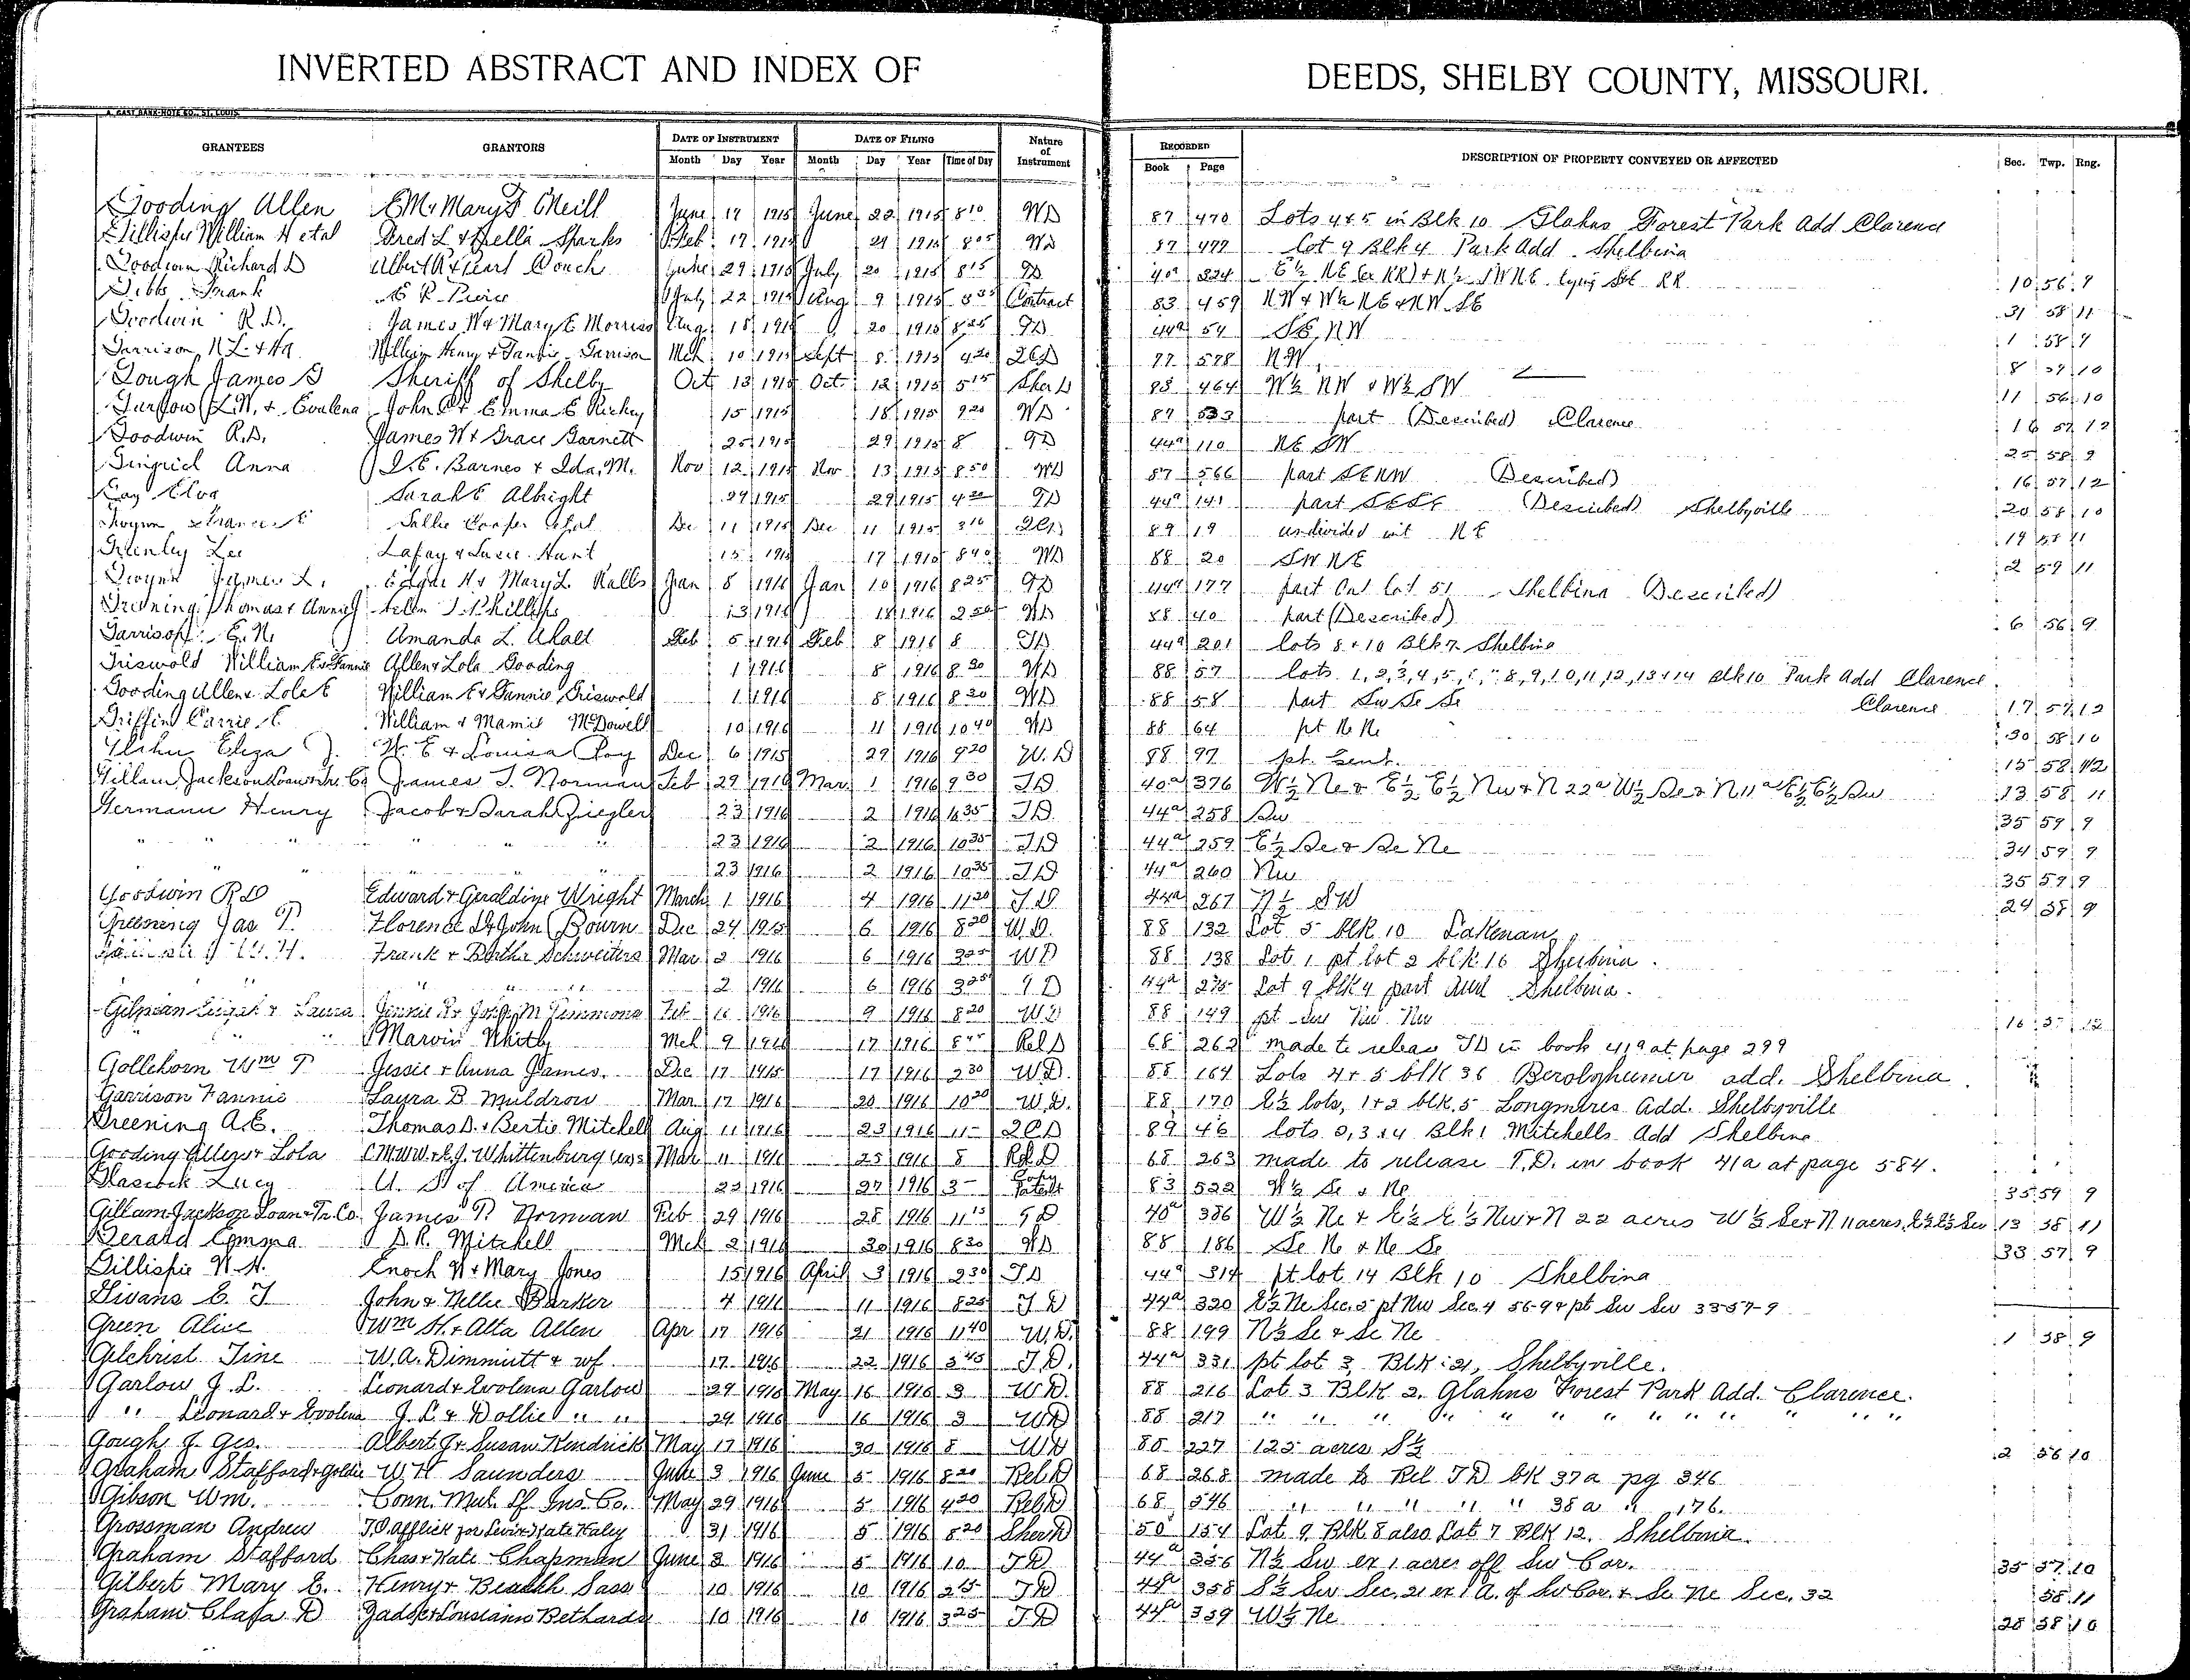 INVERTED ABSTRACT AND INDEX OF DEEDS, SHELBY COUNTY, MISSOURI.
A. GAST BANK-NOTE CO., ST. LOUIS.
GRANTEES GRANTORS DATE OF INSTRUMENT DATE OF FILING Nature of Instrument RECORDED DESCRIPTION OF PROPERTY CONVEYED OR AFFECTED Sec. Twp. Rng.
Month Day Year Month Day Year Time of Day Book Page
Gooding Allen E M & Mary F. ONeill June 17 1915 June 22 1915 8 10 WD 87 470 Lots 4 & 5 in Blk 10 Glahns Forest Park Add Clarence
Gillispie William H et al Fred L & Sparks Feb 17 1915 21 1915 8 05 WD 87 477 Lot 9 Blk 4 Park Add Shelbina
Goodwin Richard D Albert R & Pearl Couch June 29 1915 July 20 1915 8 15 TD 40a 324 E½ NE (ex RR) + N½ SW NE lying RR 10 56 9
Gibbs Frank July 22 1915 Aug 9 1915 Contract 83 459 NW & W½ NE & NW SE 31 58 11
Goodwin R.D. James W & Mary E Morriss Aug 18 1915 20 1915 8 25 TD 44a 54 SE NW 1 58 9
Garrison William Henry & Garrison Mch 10 1915 Sept 8 1915 4 20 QCD 77 578 NW 8 10
Gough James G Sheriff of Shelby Oct 13 1915 Oct 12 1915 5 15 Sher D 83 464 W½ NW & W½ SW 11 56 10
L.W. & Evalena John & Emma E Richey 15 1915 18 1915 9 20 WD 87 533 part (Described) Clarence 16 57 12
Goodwin R.D. James W & Grace Garnett 25 1915 29 1915 8 TD 44a 110 NE SW 25 58 9
Gingrich Anna I.E. Barnes & Ida M. Nov 12 1915 Nov 13 1915 8 50 WD 87 566 part SE NW (Described) 16 57 12
Gay Elva Sarah E Albright 29 1915 29 1915 4 20 TD 44a 141 part SE SE (Described) Shelbyville 20 58 10
Gwynn Sallie Cooper et al Dec 11 1915 Dec 11 1915 3 10 QCD 89 19 undivided int NE 19 58 11
Greenley Lee Lafay & Susie Hunt 15 1915 17 1915 8 40 WD 88 20 SW NE 2 59 11
Gwynn James L. Edgar H & Mary L Ralls Jan 8 1916 Jan 10 1916 8 25 TD 44a 177 part Out lot 51 Shelbina (Described)
Greening Thomas & Annie Phillips 13 1916 18 1916 WD 88 40 part (Described) 6 56 9
Garrison E.N. Amanda L Feb 5 1916 Feb 8 1916 8 TD 44a 201 lots 8 & 10 Blk 7 Shelbina
Griswold William E & Fannie Allen & Lola Gooding 1 1916 8 1916 8 30 WD 88 57 lots 1, 2, 3, 4, 5, 8, 9, 10, 11, 12, 13 & 14 Blk 10 Park Add Clarence
Gooding Allen & Lola E William E & Fannie Griswold 1 1916 8 1916 8 30 WD 88 58 part Sw Se Se Clarence 17 57 12
Griffin Carrie E. William & Mamie McDowell 10 1916 11 1916 10 40 WD 88 64 pt Ne Ne 30 58 10
Glahn Eliza J. W. E & Louisa Coy Dec 6 1915 29 1916 9 20 W.D 88 97 pt. 15 58 12
Gillam Jackson Loan & Tr. Co James T. Norman Feb 29 1916 Mar 1 1916 9 30 TD 40a 376 W½ Ne & E½ E½ Nw & N 22a W½ Se & N 11a E½ E½ Sw 13 58 11
Germann Henry Jacob & Sarah Ziegler 23 1916 2 1916 10 35 TD 44a 258 Sw 35 59 9
" " " " 23 1916 2 1916 10 35 TD 44a 259 E½ Se & Se Ne 34 59 9
" " 23 1916 2 1916 10 35 TD 44a 260 Nw 35 59 9
Goodwin R D Edward & Geraldine Wright March 1 1916 4 1916 11 20 T.D 44a 267 N½ SW 24 58 9
Greening Jas T. Florence D & John Bourn Dec 24 1915 6 1916 8 20 W.D. 88 132 Lot 5 blk 10 Lakenan
Frank & Bertha Schweiters Mar 2 1916 6 1916 3 25 WD 88 138 Lot 1 pt lot 2 blk 16 Shelbina.
" " " 2 1916 6 1916 3 25 TD 44a 275 Lot 9 blk 4 park add Shelbina.
Gilpean & Laura Jennie R & John M Timmons Feb 16 1916 9 1916 8 20 WD 88 149 pt Sw Nw Nw 16 57 12
" " " Marvin Whitby Mch 9 1916 17 1916 Rel D 68 262 made to release TD in book 41a at page 299
Gollehorn Wm T Jessie & Anna James. Dec 17 1915 17 1916 2 30 W.D. 88 164 Lots 4 & 5 blk 36 Berolzheimer add. Shelbina.
Garrison Fannie Laura B Muldrow Mar 17 1916 20 1916 10 20 W.D. 88 170 E½ lots, 1 & 2 blk. 5 Longmires Add. Shelbyville
Greening A.E. Thomas D. & Bertie Mitchell Aug 11 1916 23 1916 11 QCD 89 46 lots 2, 3 & 4 Blk 1 Mitchells Add Shelbina
Gooding Allen & Lola C M. W.W. & E.J. Whittenburg Mar 11 1916 25 1916 8 Rel D 68 263 made to release T.D. in book 41a at page 584.
Glascock Lucy U. S of America 23 1916 27 1916 3 Copy Patent 83 522 W½ Se & Ne 35 59 9
Gillam Jackson Loan & Tr. Co. James T. Norman Feb 29 1916 28 1916 11 15 TD 40a 386 W½ Ne & E½ E½ Nw & N 22 acres W½ Se & N 11 acres, E½ E½ Sw 13 58 11
Gerard Emma D. R. Mitchell Mch 2 1916 30 1916 8 30 WD 88 186 Se Ne & Ne Se 33 57 9
Gillispie W.H. Enoch W & Mary Jones 15 1916 April 3 1916 2 30 TD 44a 314 pt lot 14 Blk 10 Shelbina
Givans C. T John & Nellie Barker 4 1916 11 1916 8 25 T D 44a 320 E½ Ne Sec. 5 pt Nw Sec. 4 56-9 & pt Sw Sw 33-57-9
Green Alice Wm H. & Alta Allen Apr 17 1916 21 1916 11 40 W.D. 88 199 N½ Se & Se Ne 1 58 9
Gilchrist Tine W.A. Dimmitt & wf. 17 1916 22 1916 3 45 T.D. 44a 331 pt lot 3, Blk 21, Shelbyville.
Garlow J. L. Leonard & Evolena Garlow 29 1916 May 16 1916 3 W.D. 88 216 Lot 3 Blk 2. Glahns Forest Park Add. Clarence.
" Leonard & Evolena J. L & Dollie " " 29 1916 16 1916 3 WD 88 217 " " " " " " " " " " " "
Gough J. Geo. Albert J & Susan Kendrick May 17 1916 30 1916 8 WD 88 227 125 acres S½ 2 56 10
Graham Stafford & Goldie W H Saunders June 3 1916 June 5 1916 8 20 Rel D 68 268 made to Rel TD bk 37a pg 346
Gibson Wm. Conn. Mut. Lf Ins. Co. May 29 1916 5 1916 4 20 Rel D 68 546 " " " " " 38 a " 176.
Grossman Andrew T.O. Afflick for Levi & Kate Haley 31 1916 5 1916 8 20 Sher D 50 154 Lot 9, Blk 8 also Lot 7 Blk 12. Shelbina.
Graham Stafford Chas & Kate Chapman June 3 1916 5 1916 10 T D 44a 356 N½ Sw ex 1 acres off Sw Cor. 35 57 10
Gilbert Mary E. Henry & Sass 10 1916 10 1916 2 15 TD 44a 358 S½ Sw Sec. 21 ex 1 A. of Sw Cor. & Se Ne Sec. 32 58 11
Graham Clara D & Lousiann Bethards 10 1916 10 1916 3 25 TD 44a 359 W½ Ne 28 58 10